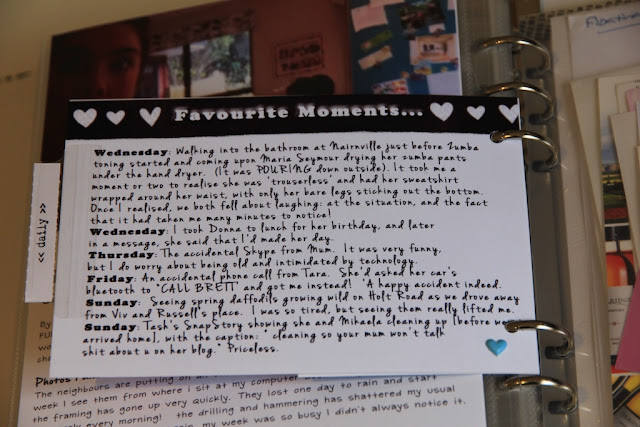 Floating
Favourite Moments...
Wednesday: Walking into the bathroom at Nairnville just before Zumba
toning started and coming upon Maria Seymour drying her zumba pants
under the hand dryer. (It was POURING down outside). It took me a
moment or two to realise she was 'trouserless' and had her sweatshirt
wrapped around her waist, with only her bare legs sticking out the bottom.
Once I realised, we both fell about laughing: at the situation, and the fact
that it had taken me many minutes to notice!
Wednesday: I took Donna to lunch for her birthday, and later
in a message, she said that I'd made her day.
Thursday: The accidental Skype from Mum. It was very funny,
but I do worry about being old and intimidated by technology.
Friday: An accidental phone call from Tara. She'd asked her car's
bluetooth to "CALL BRETT" and got me instead! 'A happy accident indeed.
Sunday: Seeing spring daffodils growing wild on Holt Road as we drove away
from Viv and Russell's place. I was so tired, but seeing them really lifted me.
Sunday: Tash's SnapStory showing she and Mikaela cleaning up [before we
arrived home], with the caption: "cleaning so your mum won't talk
shit about u on her blog." Priceless.
<< daily >>
By
FU
wi
cha
Photos
The neighbours are putting on an
week I see them from where I sit at my computer
the framing has gone up very quickly. They lost one day to rain and start
every morning! the drilling and hammering has shattered my usual
my week was so busy I didn't always notice it.